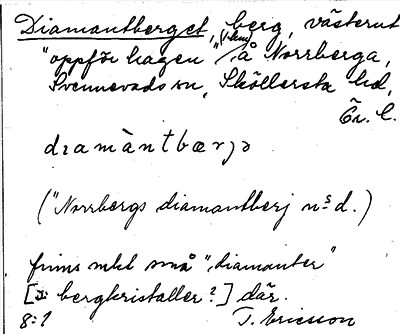 Diamantberget, berg, västerut
"oppför hagen" å Norrberga,
Svennevads sn, Sköllersta hd,
Ör. l.
dıamàntbærjə
("Norrbergs diamantberj nsd.)
finns mkl små "diamanter"
[ɔ: bergkristaller?] där.
8:1 T. Ericsson